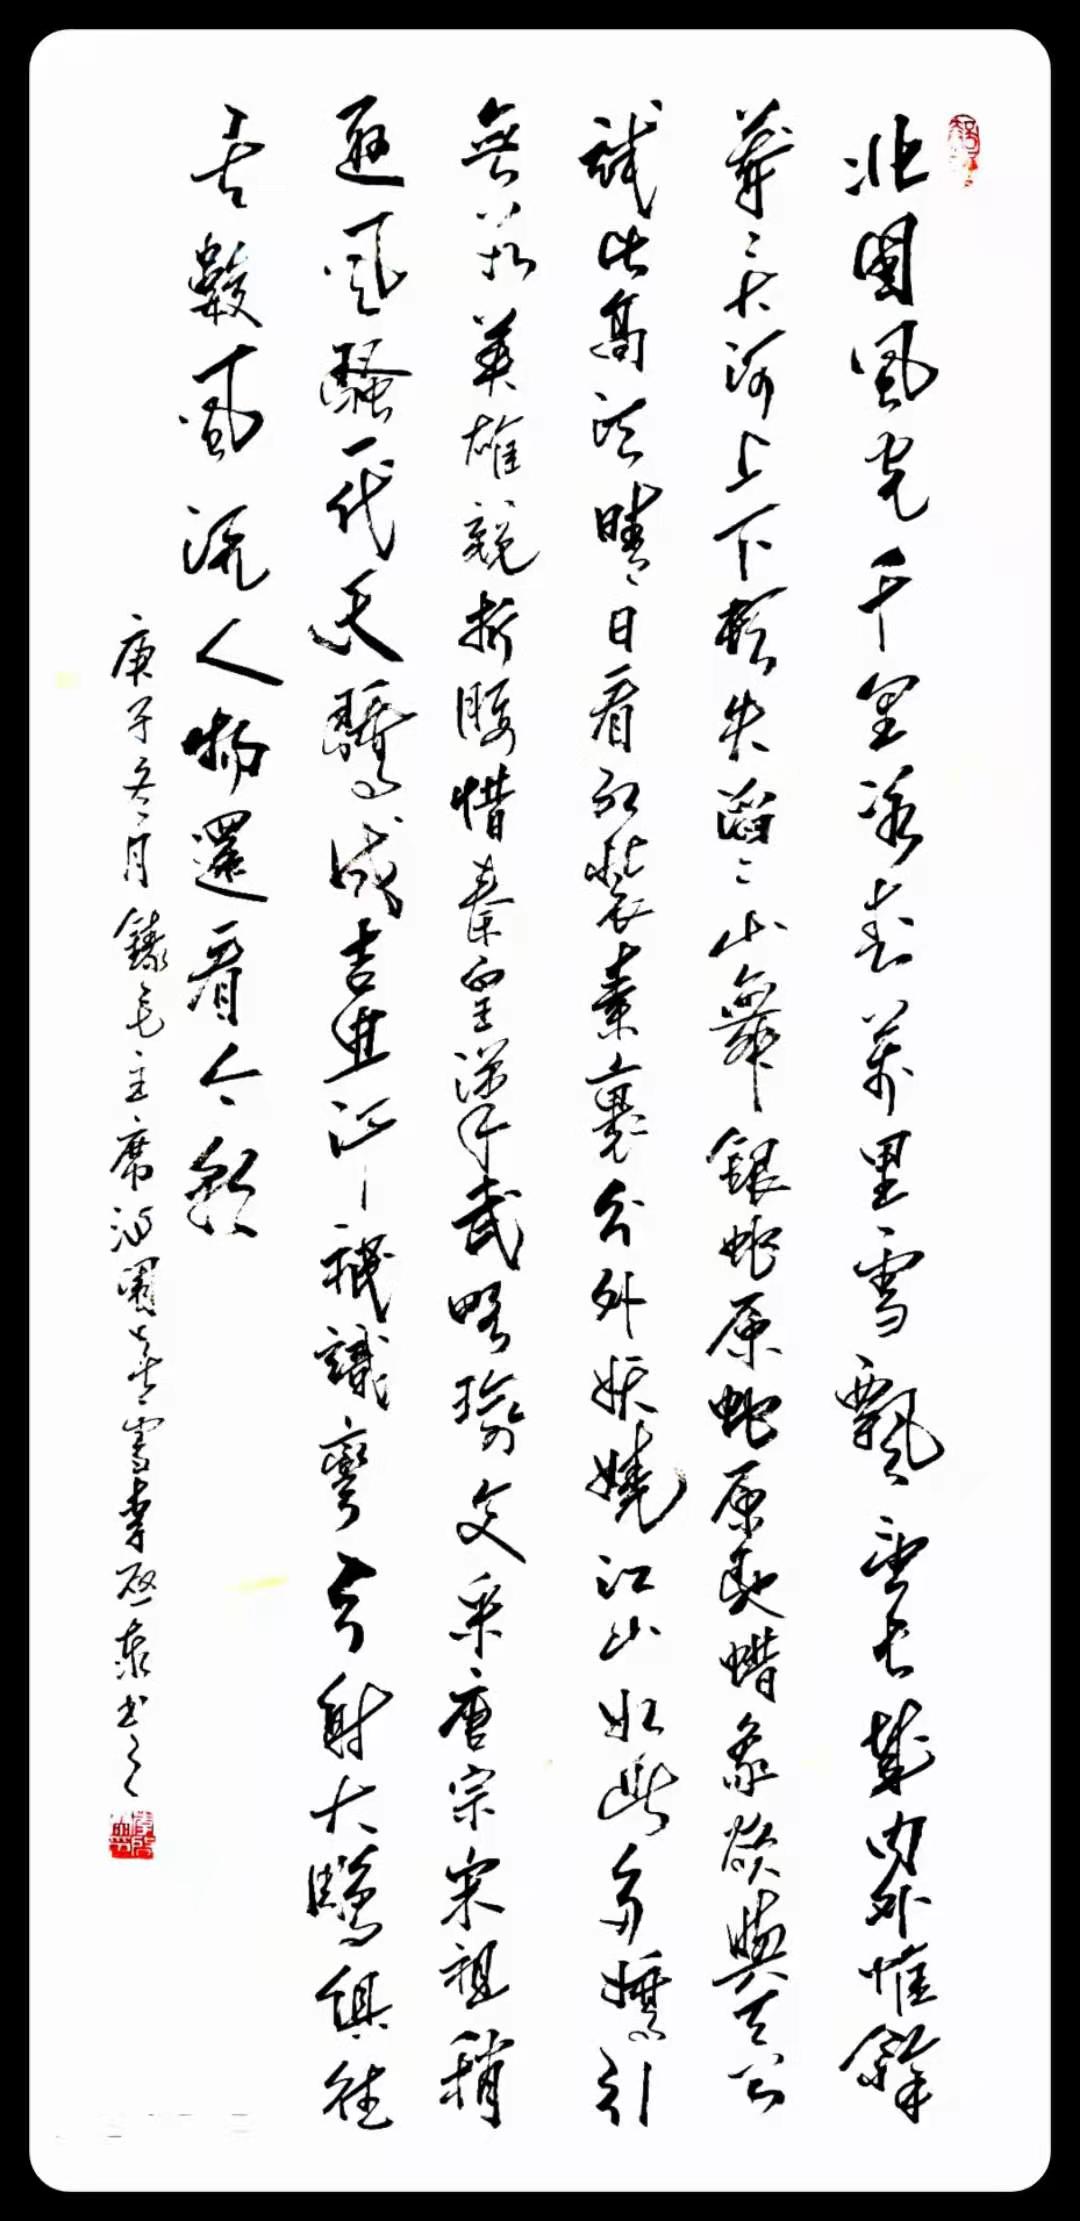 北國風光千里冰封萬里雪飄望長城內外惟餘
莽々大河上下頓失滔々山舞銀蛇原蛇原馳蜡象欲與天公
試比高須晴日看紅裝素裹分外妖嬈江山如此多嬌引
無數英雄競折腰惜秦皇漢武略輸文采唐宗宋祖稍
遜風騷一代天驕成吉思汗衹識彎弓射大鵰俱往
矣數風流人物還看今朝
庚子冬月錄毛主席沁園春雪李啟泰书之